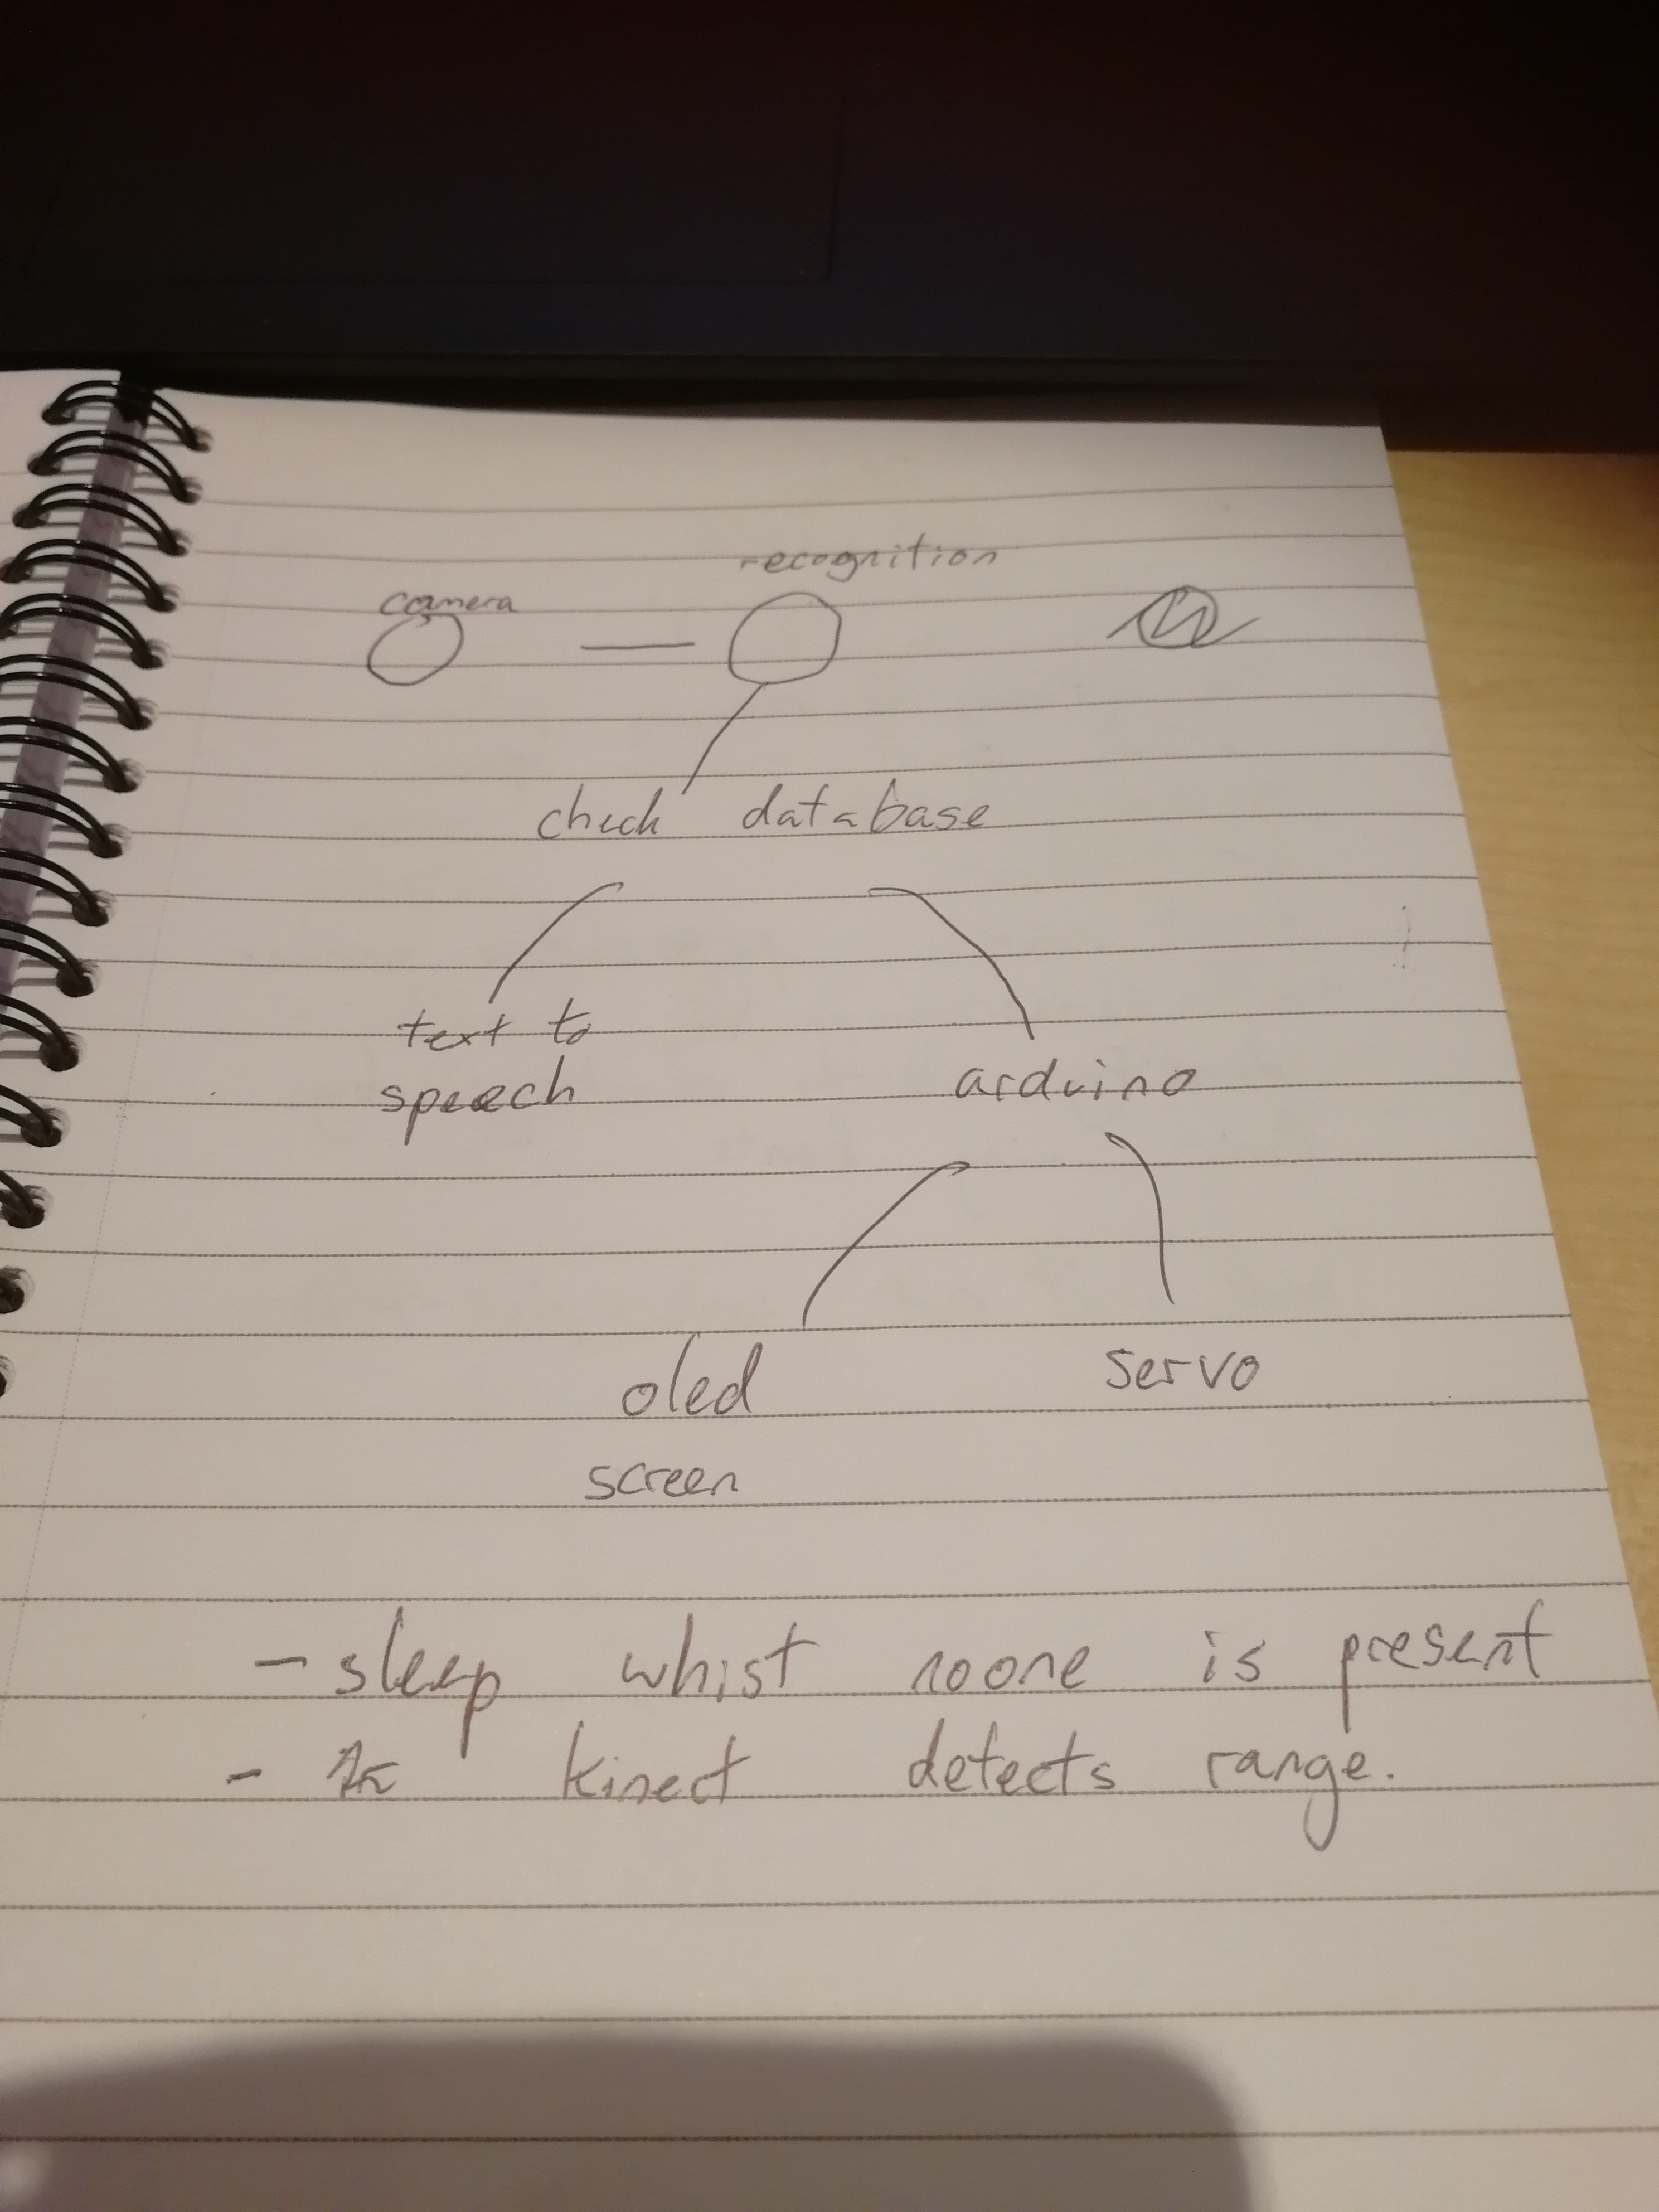 recognition
camera
check database
text to
speech
arduino
oled
servo
screen
- sleep whist noone is present
- kinect detects range.